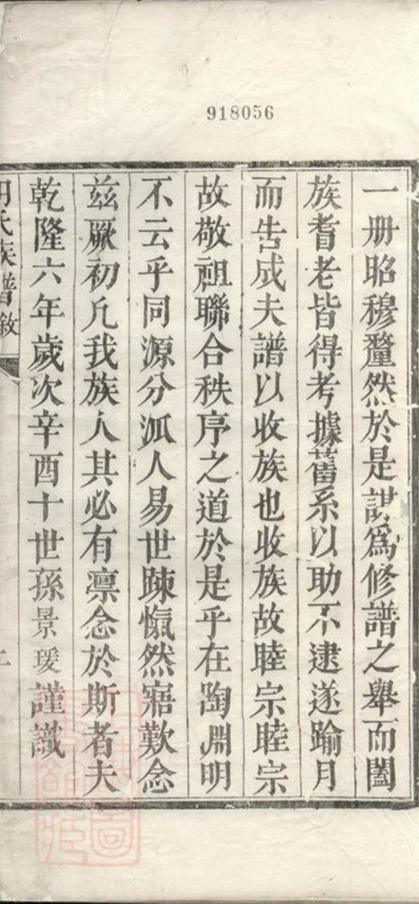 918056
一册昭穆釐然於是謀爲修譜之舉而闔
族耆老皆得考據舊系以助不逮遂踰月
而告成夫譜以收族也收族故睦宗睦宗
故敬祖聯合秩序之道於是乎在陶淵明
不云乎同源分派人易世疎慨然寤歎念
兹厥初凡我族人其必有凛念於斯者夫
乾隆六年歲次辛酉十世孫景瑗謹識
氏族譜敘